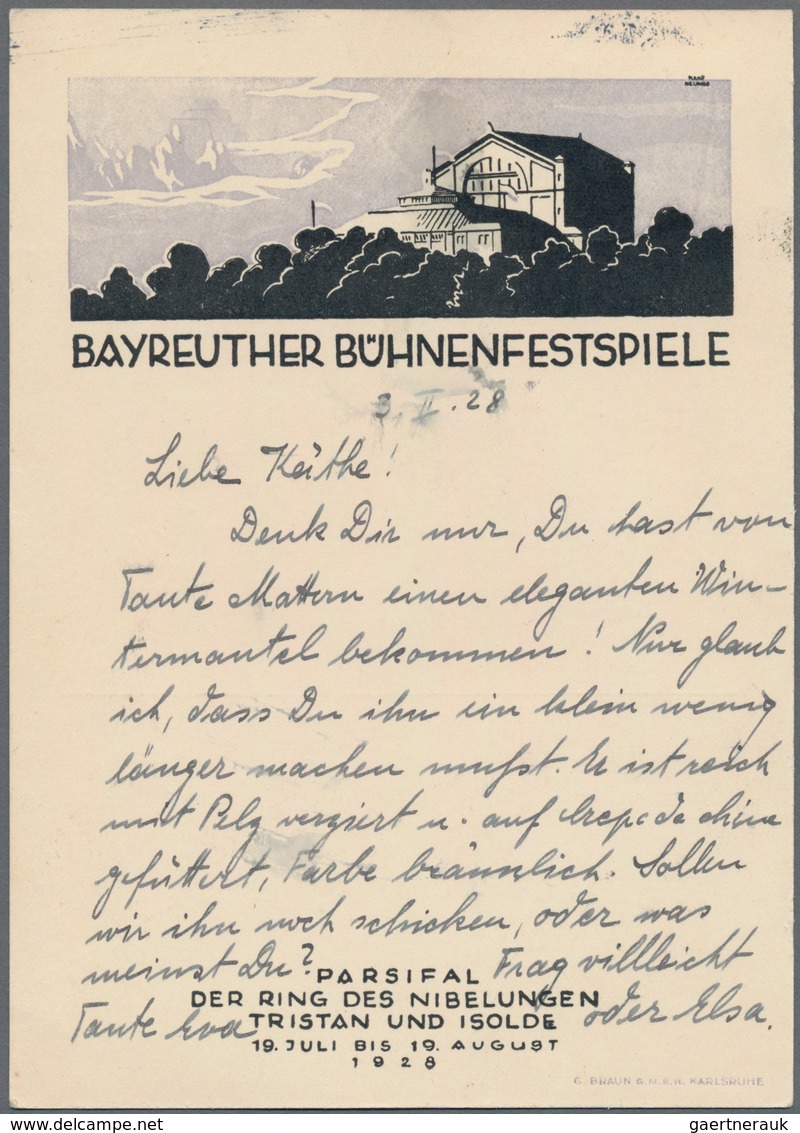 BAYREUTHER BÜHNENFESTSPIELE
3. II. 28
Liebe Käthe!
Denk Dir nur, Du hast von
Tante Mattern einen eleganten Win-
termantel bekommen! Nur glaub
ich, dass Du ihn ein klein wenig
länger machen mußt. Er ist reich
mit Pelz verziert u. auf Crepe de chine
gefüttert, Farbe bräunlich. Sollen
wir ihn noch schicken, oder was
meinst Du? Frag villleicht
Tante Eva oder Elsa.
PARSIFAL
DER RING DES NIBELUNGEN
TRISTAN UND ISOLDE
19. JULI BIS 19. AUGUST
1928
G. BRAUN G.M.B.H. KARLSRUHE
gaertnerauk